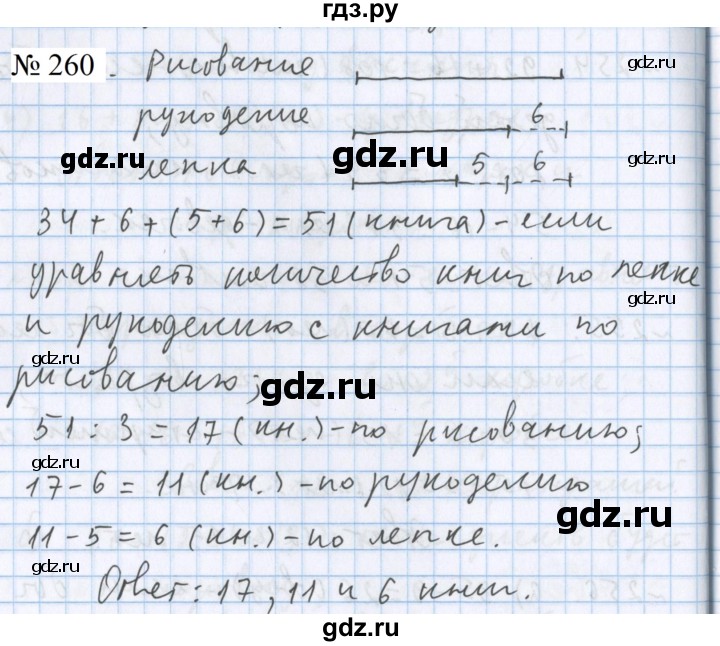 гдз.ру
№ 260. Рисование
gdz.ru
рукоделие 6
gdz.ru
gdz.ru
gdz.ru
лепка 5 6
gdz.ru
34 + 6 + (5 + 6) = 51 (книга) - если
gdz.ru
уравнять количество книг по лепке
gdz.ru
и рукоделию с книгами по
gdz.ru
рисованию;
gdz.ru
51 : 3 = 17 (кн.) - по рисованию;
gdz.ru
17 - 6 = 11 (кн.) - по рукоделию
gdz.ru
11 - 5 = 6 (кн.) - по лепке.
gdz.ru
gdz.ru
Ответ: 17, 11 и 6 книг.
gdz.ru